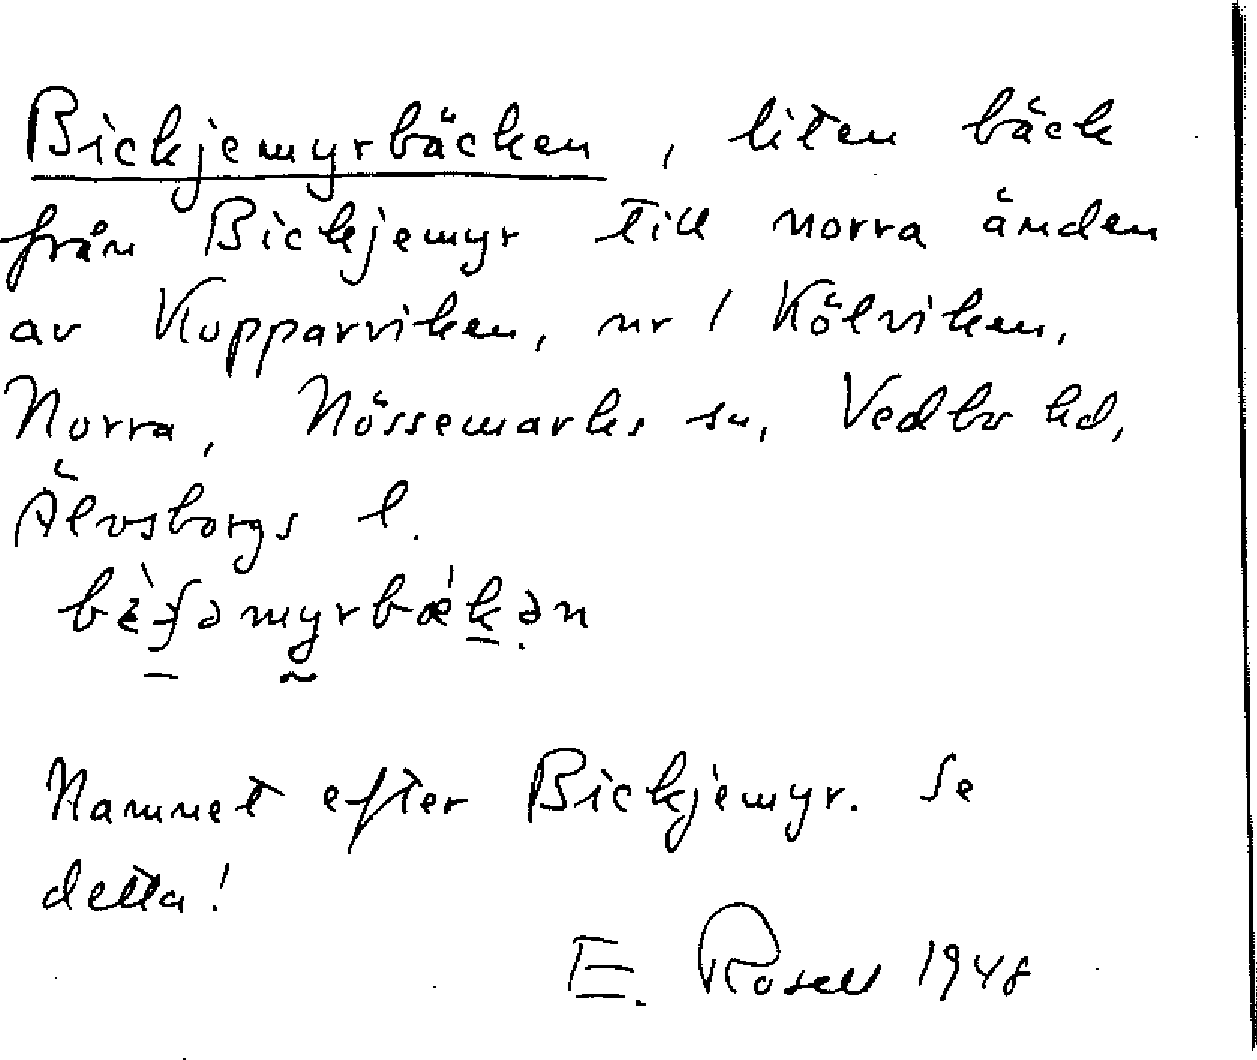 Bickjemyrbäcken, liten bäck
från Bickjemyr till norra änden
av Kopparviken, nr 1 Kölviken,
Norra, Nössemarks sn, Vedbo hd,
Älvsborgs l.
Namnet efter Bickjemyr. Se
detta!
E. Rosell 1948